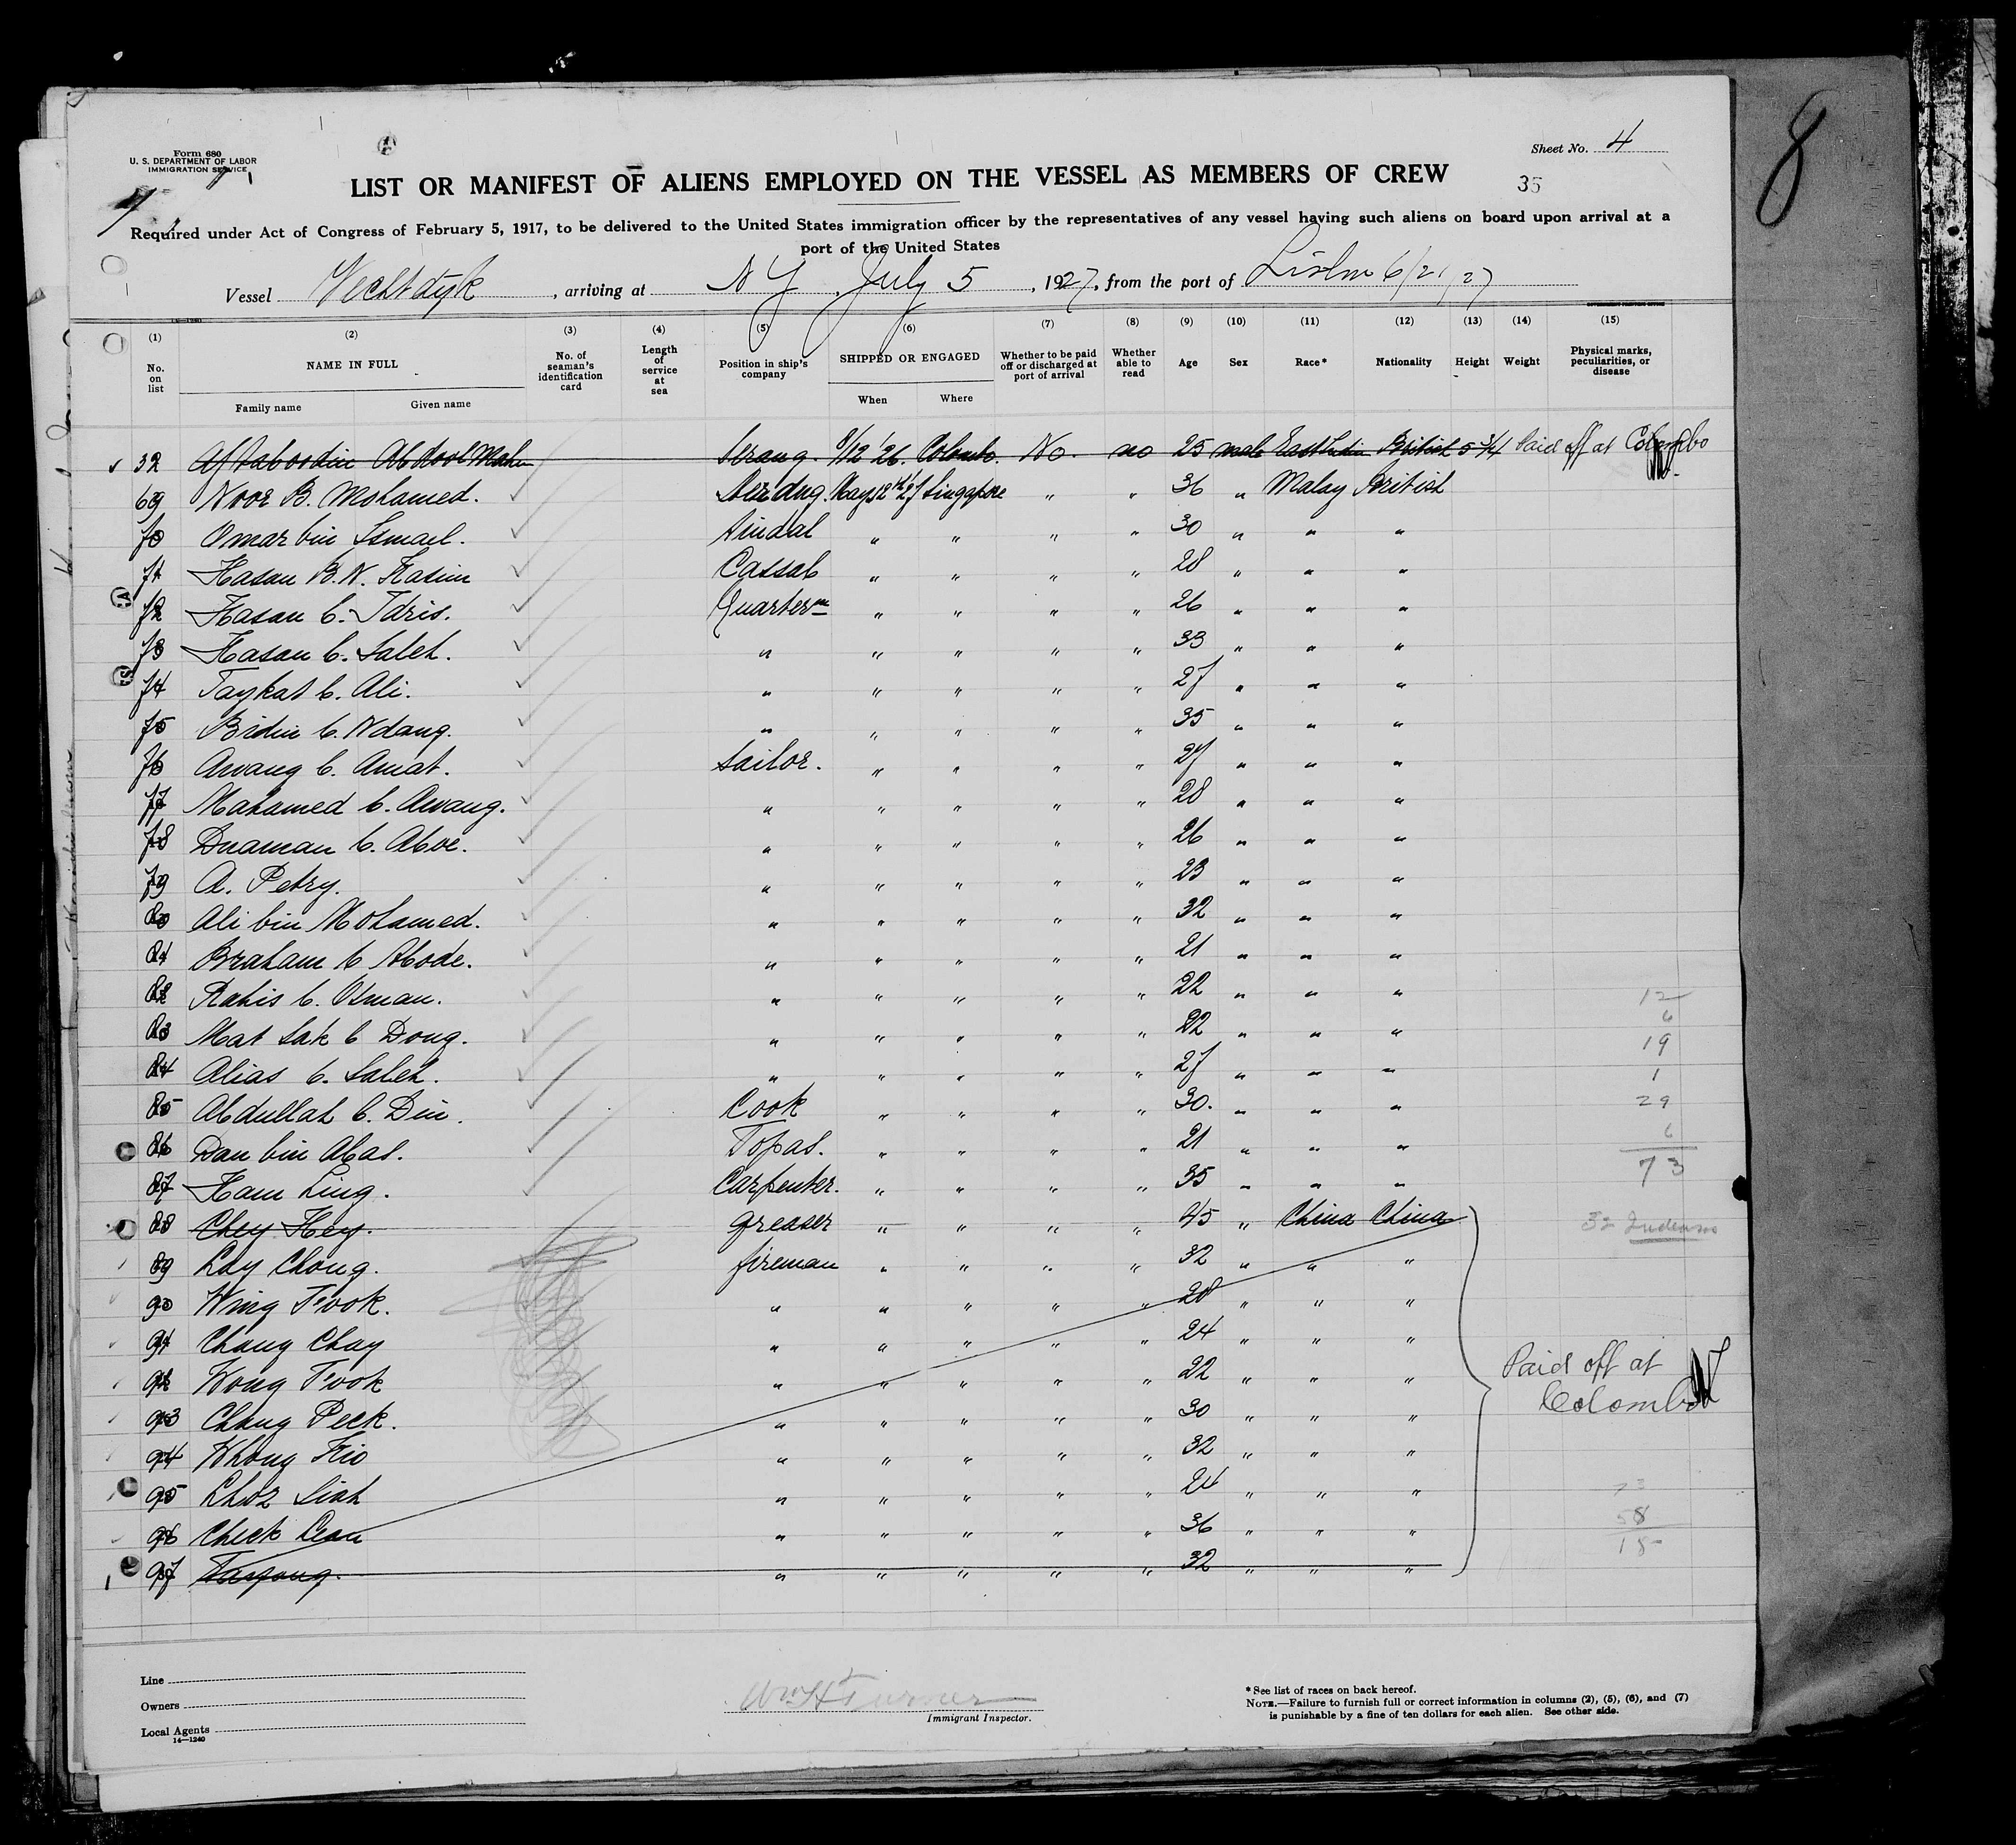 Form 680
U. S. DEPARTMENT OF LABOR
IMMIGRATION SERVICE
Sheet No. 4
LIST OR MANIFEST OF ALIENS EMPLOYED ON THE VESSEL AS MEMBERS OF CREW
35
8
Required under Act of Congress of February 5, 1917, to be delivered to the United States immigration officer by the representatives of any vessel having such aliens on board upon arrival at a
port of the United States
Vessel Vechtdyk, arriving at N Y, July 5, 1927, from the port of Lisbn 6/21/27
14—1240
(1) (2) (3) (4) (5) (6) (7) (8) (9) (10) (11) (12) (13) (14) (15)
No. on list NAME IN FULL Family name Given name No. of seaman's identification card Length of service at sea Position in ship's company SHIPPED OR ENGAGED When Where Whether to be paid off or discharged at port of arrival Whether able to read Age Sex Race* Nationality Height Weight Physical marks, peculiarities, or disease
32 Aftaboodin Abdool Mahn Serang. 9/12 '26. Colombo. No. no 25 male East Indian British 5 3/4 Paid off at Colombo
69 Noor B. Mohamed. Serang. May 12th 27 Singapore " " 36 " Malay British
70 Omar bin Ismael. Tindal " " " " 30 " " "
71 Hasan B. N. Kasim Cassab " " " " 28 " " "
72 Hasan b. Idris. Quarterm " " " " 26 " " "
73 Hasan b. Saleh. " " " " " 33 " " "
74 Taykat b. Ali. " " " " " 27 " " "
75 Bidin b. Ndang. " " " " " 35 " " "
76 Awang b. Amat. Sailor. " " " " 27 " " "
77 Mahamed b. Awang. " " " " " 28 " " "
78 Dnaman b. Aboe. " " " " " 26 " " "
79 A. Petry. " " " " " 23 " " "
80 Ali bin Mohamed. " " " " " 32 " " "
81 Braham b Abode. " " " " " 21 " " "
82 Rahis b. Osman. " " " " " 22 " " "
83 Mat Sak b Dong. " " " " " 22 " " "
84 Alias b. Saleh. " " " " " 27 " " "
85 Abdullah b. Din. Cook " " " " 30. " " "
86 Dan bin Abas. Topas. " " " " 21 " " "
87 Ham Ling. Carpenter. " " " " 35 " " "
88 Chey Hey. greaser " " " " 45 " China China
89 Lay Chong. fireman " " " " 32 " " "
90 Wing Fook. " " " " " 28 " " "
91 Chang Chay " " " " " 24 " " "
92 Wong Fook " " " " " 22 " " "
93 Chang Peck. " " " " " 30 " " "
94 Whong Kio " " " " " 32 " " "
95 Choz Siah " " " " " 24 " " "
96 Check Dean " " " " " 36 " " "
97 Tayong. " " " " " 32 " " "
12
6
19
1
29
6
73
32 Indians
Paid off at
Colombo
73
58
15
Line
Owners
Local Agents
14—1240
Wm H Turner
Immigrant Inspector.
* See list of races on back hereof.
NOTE.—Failure to furnish full or correct information in columns (2), (5), (6), and (7)
is punishable by a fine of ten dollars for each alien. See other side.